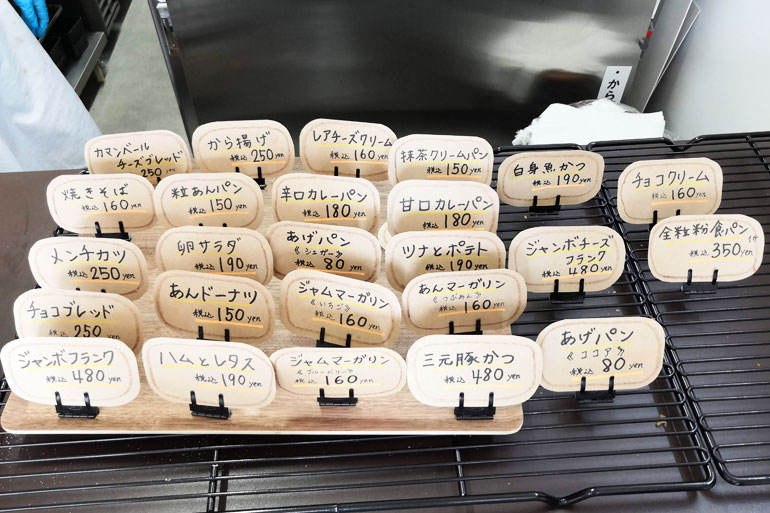 ・から
カマンベール
チーズブレッド
250
から揚げ
税込 250yen
レアチーズクリーム
税込 160yen
抹茶クリームパン
税込 150yen
白身魚かつ
税込 190yen
チョコクリーム
税込 160yen
焼きそば
税込 160yen
粒あんパン
税込 150yen
辛口カレーパン
税込 180yen
甘口カレーパン
税込 180yen
メンチカツ
税込 250yen
卵サラダ
税込 190yen
あげパン
《シュガー》
税込 80yen
ツナとポテト
税込 190yen
ジャンボチーズ
フランク
税込 480yen
全粒粉食パン
税込 350yen
チョコブレッド
税込 250yen
あんドーナツ
税込 150yen
ジャムマーガリン
《いちご》
税込 160yen
あんマーガリン
《つぶあん》
税込 160yen
ジャンボフランク
税込 480yen
ハムとレタス
税込 190yen
ジャムマーガリン
《ブルーベリー》
税込 160yen
三元豚かつ
税込 480yen
あげパン
《ココア》
税込 80yen